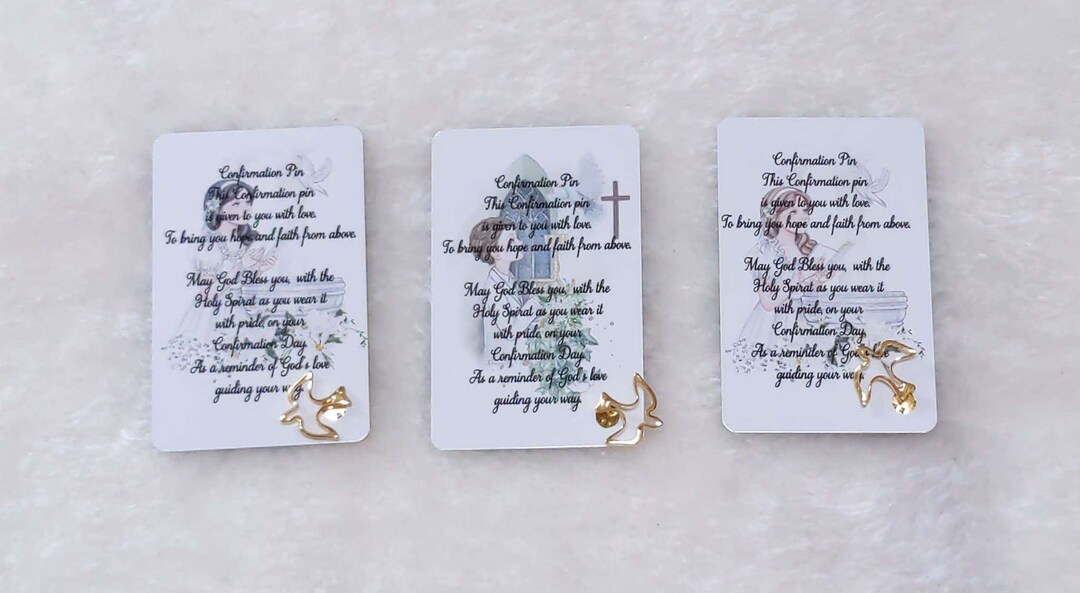 Confirmation Pin
This Confirmation pin
is given to you with love.
To bring you hope and faith from above.
May God Bless you, with the
Holy Spirat as you wear it
with pride, on your
Confirmation Day.
As a reminder of God's love
guiding your way.
Confirmation Pin
This Confirmation pin
is given to you with love.
To bring you hope and faith from above.
May God Bless you, with the
Holy Spirat as you wear it
with pride, on your
Confirmation Day.
As a reminder of God's love
guiding your way.
Confirmation Pin
This Confirmation pin
is given to you with love.
To bring you hope and faith from above.
May God Bless you, with the
Holy Spirat as you wear it
with pride, on your
Confirmation Day.
As a reminder of
guiding your way.